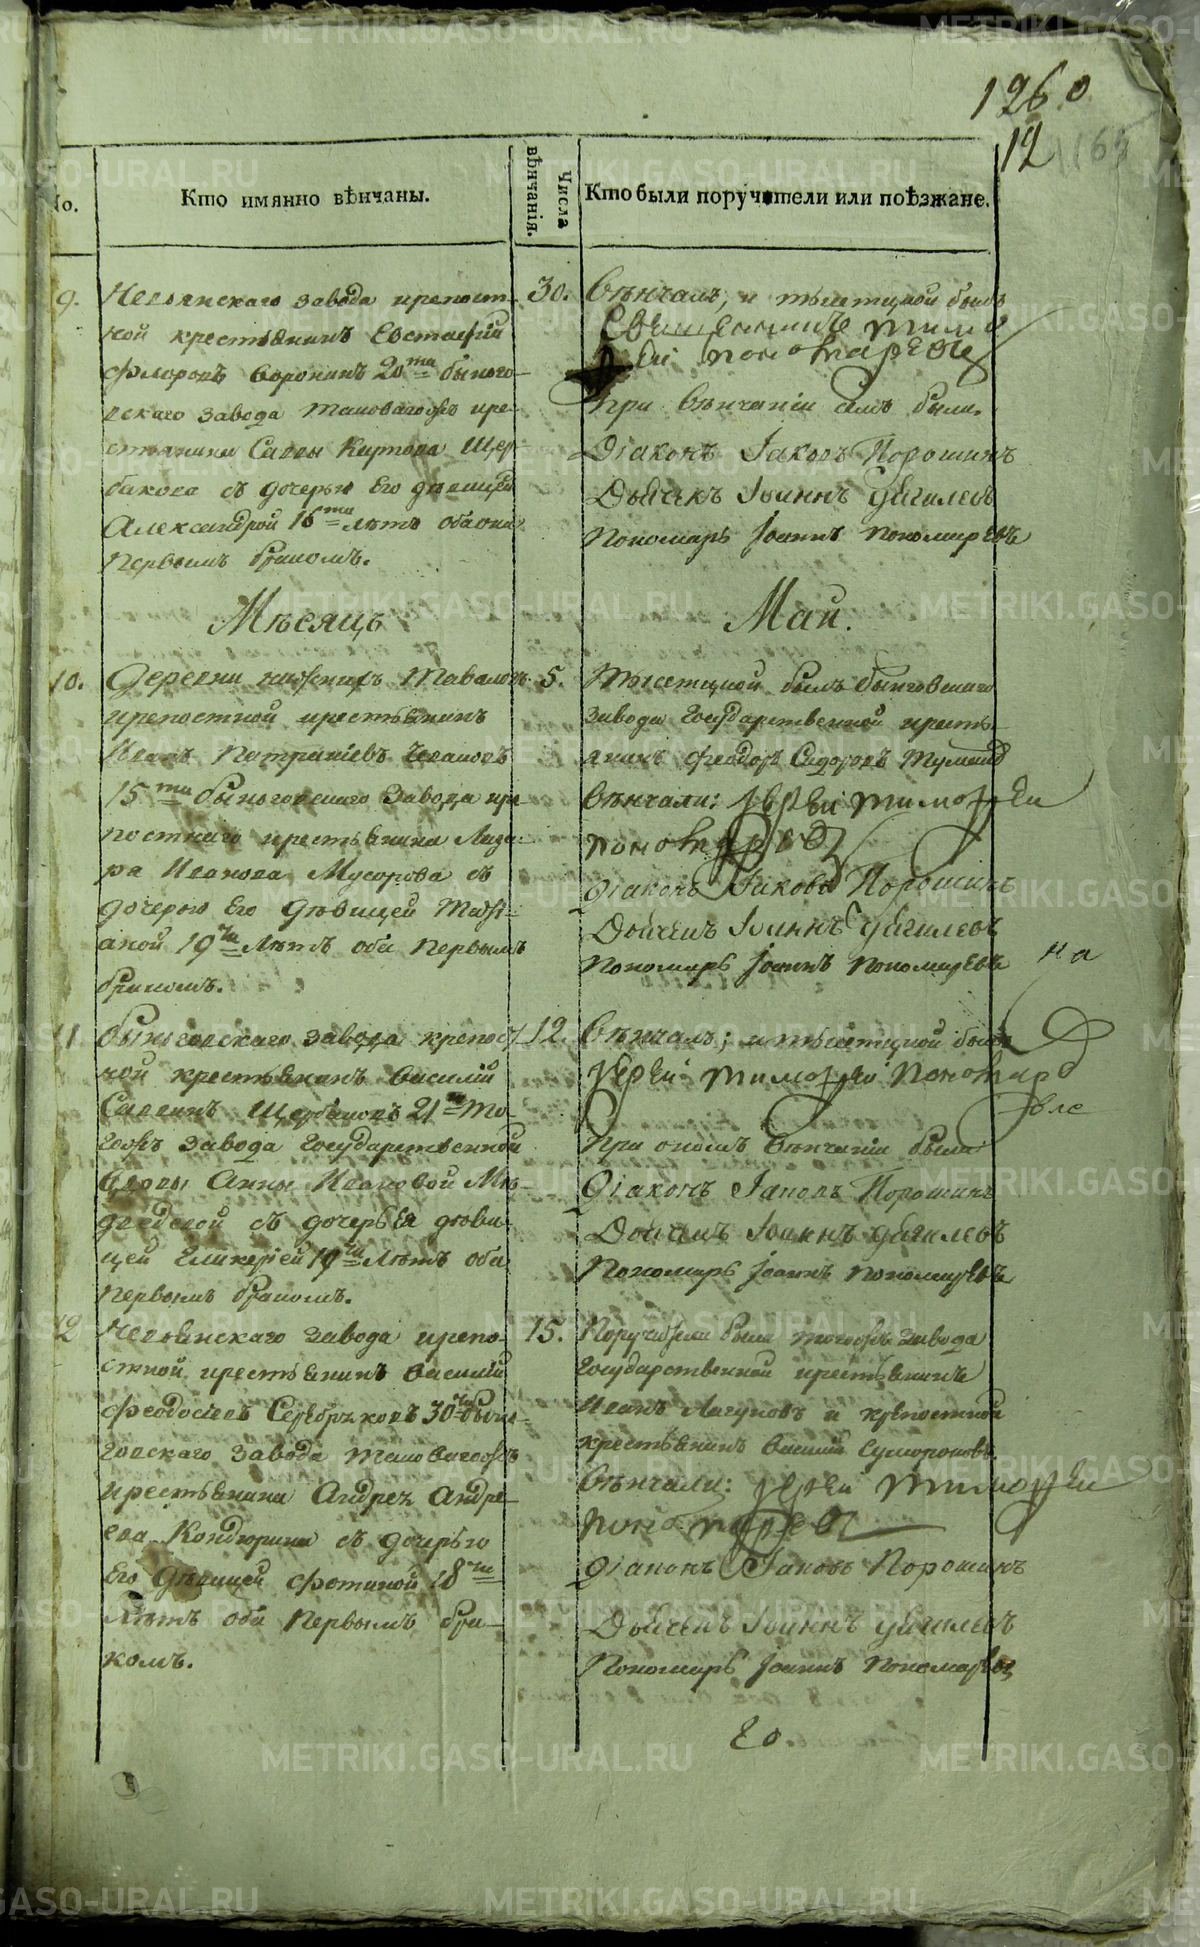 1260
12
1163
No.
Кто имянно вѣнчаны.
Числа вѣнчанія.
Кто были поручители или поѣзжане.
9.
Невьянскаго завода крепост-
ной крестьянинъ Евстафій
Флоровъ Воронинъ 20ти Быньго-
вскаго завода таковагожъ кре-
стьянина Саввы Карпова Щер-
бакова съ дочерью Его дѣвицей
Александрой 16ти лѣтъ оба они
первымъ бракомъ.
30.
Вѣнчалъ, и тысетцкой былъ
Священникъ Тимо
ѳей Пономаревъ
При Вѣнчаніи были.
Діаконъ Іаковъ Порошинъ
Дьячекъ Іоаннъ
Пономарь Іоаннъ Пономаревъ
Мѣсяцъ
Май.
10.
Деревни нижнихъ Тавологъ
крепостной крестьянинъ
Иванъ
15ти Быньговскаго завода кре
постнаго крестьянина Лаза-
ра Иванова Мусорова съ
дочерью Его дѣвицей Татi-
аной 19ти Лѣтъ оба Первымъ
бракомъ.
5.
Тысетцкой былъ Быньговскаго
завода Государственной кресть-
янинъ Феодоръ Сидоровъ
Вѣнчали: Іерей Тимоѳей
Пономаревъ
Діаконъ Іаковъ Порошинъ
Дьячекъ Іоаннъ
Пономарь Іоаннъ Пономаревъ
на
11.
Быньговскаго завода крепост
ной крестьянинъ Василій
Саввинъ Щербаковъ 21 То-
гожъ завода Государственной
вдовы Анны Ивановой Мѣ-
двѣдевой съ дочерья дѣви-
цей Гликеріей 19ти Лѣтъ оба
первымъ бракомъ.
12.
Вѣнчалъ; и тысетцкой былъ
Іерей Тимоѳей Пономаре
въ
При ономъ Вѣнчаніи были
Діаконъ Іаковъ Порошинъ
Дьячекъ Іоаннъ
Пономарь Іоаннъ Пономаревъ
12
Невьянскаго завода крепо-
стной крестьянинъ Василий
Феодосѣевъ Серебряковъ 30ти Бынь-
говскаго завода таковагожъ
крестьянина Андрея Андре-
ева Кондюрина съ дочерью
Его Дѣвицей Фотиной 18ти
Лѣтъ оба Первымъ бра-
комъ.
15.
Поручители были тогожъ завода
Государственной крестьянинъ
Иванъ Лагуновъ и крѣпостной
крестьянинъ Василий
Вѣнчали: Іерей Тимоѳей
Пономаревъ
Діаконъ Іаковъ Порошинъ
Дьячекъ Іоаннъ
Пономарь Іоаннъ Пономаревъ
METRIKI.GASO-URAL.RU